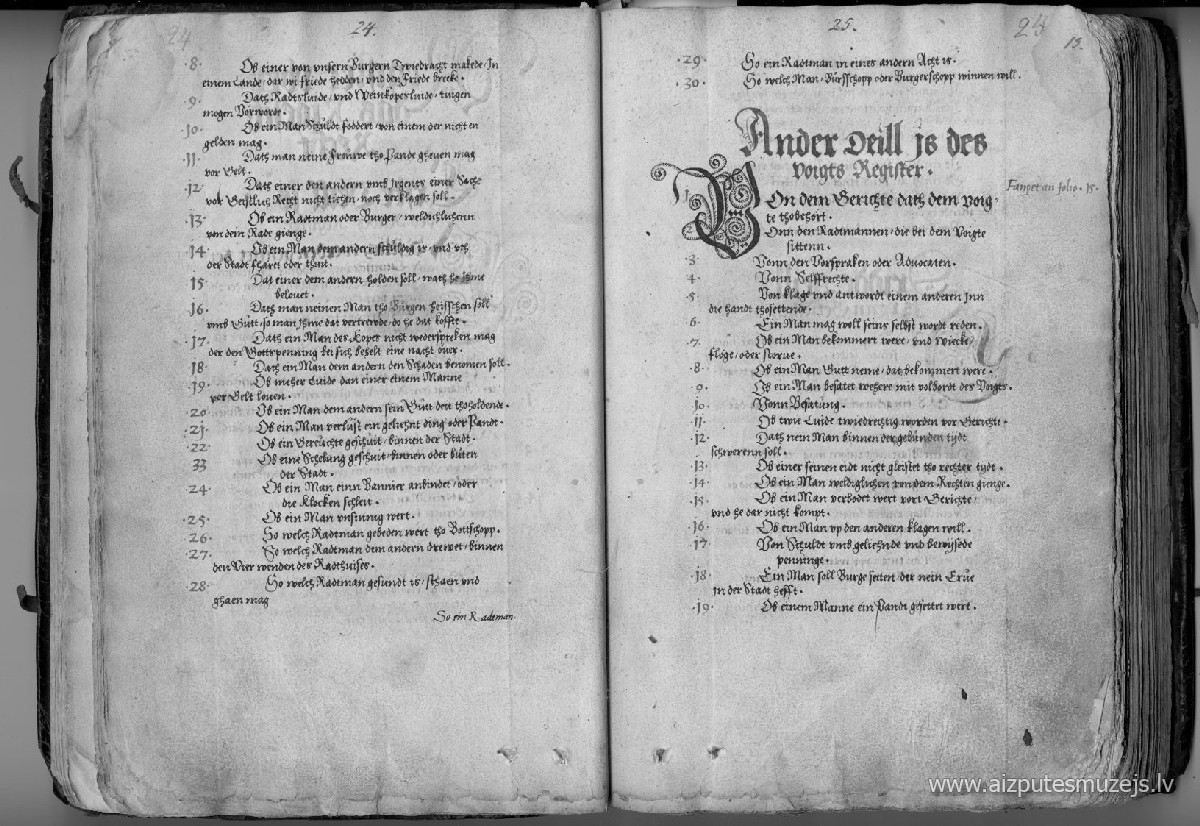 24
24.
8. Ob einer von unsern Burgern Twiedracht makede, In
einem Lande, dar wi friede hedden, vnd den Friede brecke.
9. Dath Radtslude, vnd Weinkopeslude, tuigen
mogen Vorworde.
10. Ob ein Man Schuldt foddert, von einem der nicht en
gelden mag.
11. Dath man neine Frouwe tho Pande gheven mag
vor Gelt.
12. Datt einer den andern vmb jrgents einer Sache
vor Geistlich Recht nicht tiehen, noch verklagen soll.
13. Ob ein Radtman oder Burger, weldichlichenn
von dem Rade gienge.
14. Ob ein Man dem andern schuldig is, vnd vth
der Stadt fharet oder thuit.
15 Dat einer dem andern holden soll, wath he ihme
belovet.
16. Dath man neinen Man tho Burgen heisschen soll
vmb Gutt, so man jhme dat vertrerde, do he dat koffte.
17. Dath ein Man des Kopes nicht wederspreken mag
der den Gottspenning bei sich behelt eine nacht over.
18 Dath ein Man dem andern den Schaden benomen soll.
19. Ob meher Luide dan einer einem Manne
vor Gelt loven.
20 Ob ein Man dem andern sein Gutt den thoholdende.
21. Ob ein Man verlust ein geliehnt ding oder Pandt.
22 Ob ein Geruchte geschuit, binnen der Stadt.
33 Ob eine Schelung geschuit, binnen oder buten
der Stadt.
24. Ob ein Man einn Bannier anbindet, oder
die Klocken schleit.
25. Ob ein Man vnsinnig wert.
26. So welch Radtman gebeden wert tho Bottschopp.
27. So welch Radtman dem andern drewet, binnen
den Vier wenden des Radthuises.
28. So welch Radtman gesundt is, sthaen vnd
ghaen mag
So ein Radtman
25.
25
13.
29. So ein Radtman in eines andern Acht is.
30. So welch Man, Burschopp oder Burgerschopp winnen will.
Ander Deill js des
Voigts Register.
Fanget an folio. 15.
1. Von dem Gerichte dath dem Voig-
te thobehort.
2. Vonn den Radtmannen, die bei dem Voigte
sittenn.
3. Vonn den Vorspraken oder Advocaten.
4. Vonn Selffrechte.
5. Von klage vnd antwordt einem anderen Inn
die handt thosettende.
6. Ein Man mag woll seins selbst wordt reden.
7. Ob ein Man bekommert were, vnd Wiecke,
floge, oder storve.
8. Ob ein Man Gutt neme, dat bekommert were.
9. Ob ein Man besatet wehere mit volbordt des Voiges.
10. Vonn Besatung.
11. Ob twie Luide twiedrechtig worden vor Gerichte.
12. Dath nein Man binnen der gebunden tydt
schwerenn soll.
13. Ob einer seinen eidt nicht gleistet tho rechter tydt.
14. Ob ein Man weldiglichen von dem Rechten gienge.
15. Ob ein Man verbodet wert vort Gerichte,
vnd he dar nicht kompt.
16. Ob ein Man vp den anderen klagen will.
17. Von Schuldt vmb geliehnde vnd bewysede
penninge.
18. Ein Man soll Burge setten, der nein Erve
in der Stadt hefft.
19. Ob einem Manne ein Pandt gesettet wert.
www.aizputesmuzejs.lv